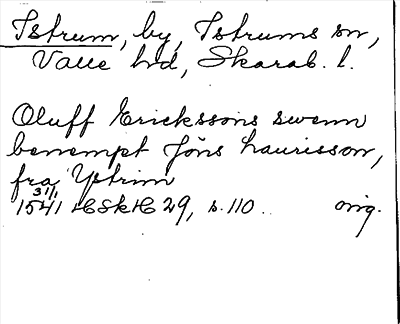 Istrum, by, Istrums sn,
Valle hd, Skarab. l.
Oluff Erickssons swenn
benempt Jöns Laurisson,
fra Ystrim
1541 31/1 HSkH 29, s. 110 .. orig.